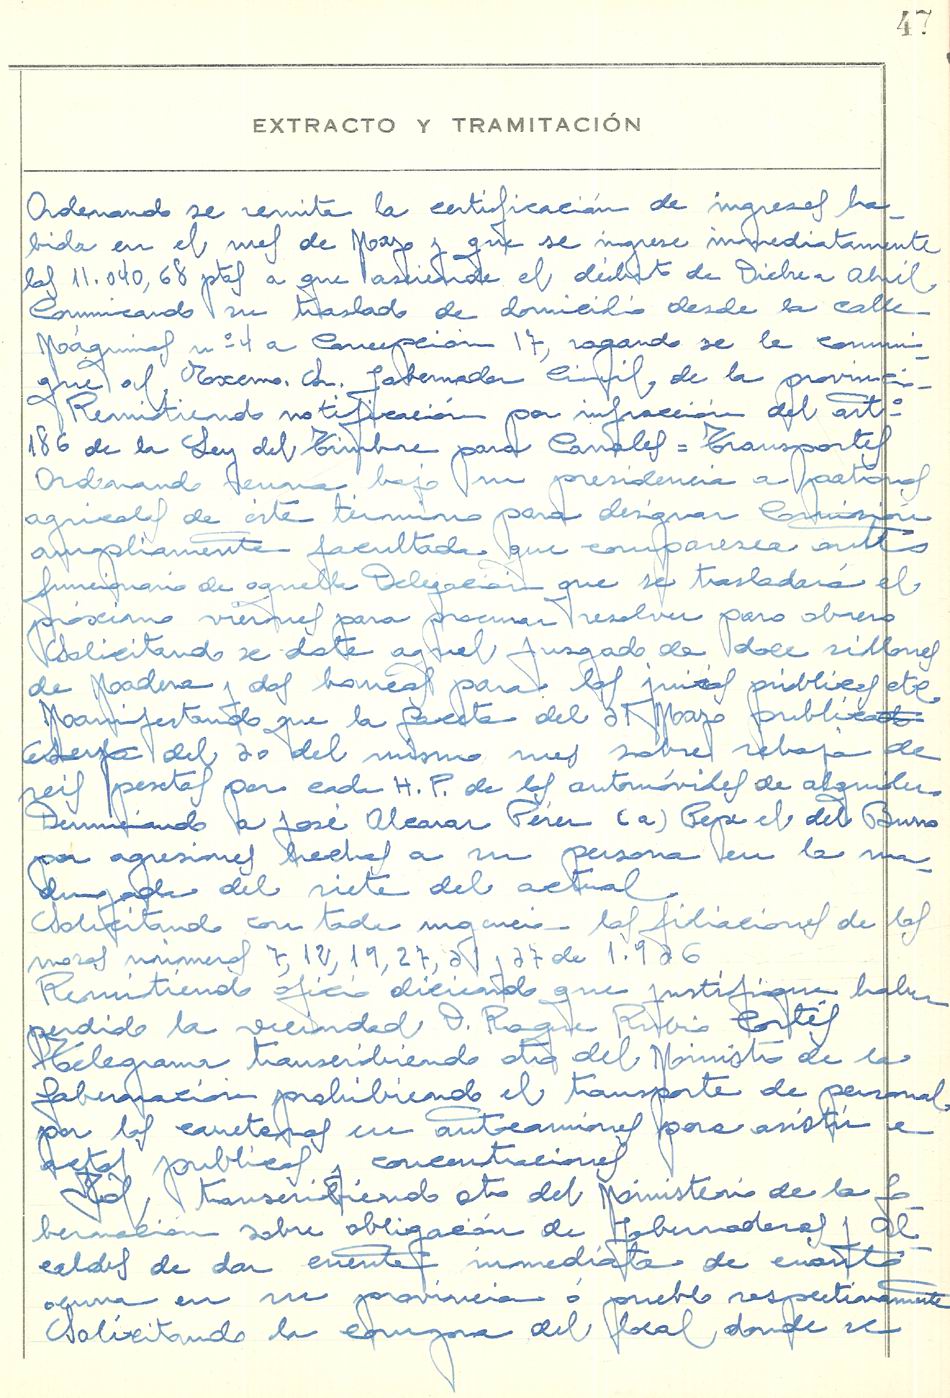 47
EXTRACTO Y TRAMITACIÓN
Ordenando se remita la certificación de ingresos ha-
bida en el mes de Mayo y que se ingrese inmediatamente
las 11.040,68 ptas a que asciende el débito de Dicbre a Abril
Comunicando su traslado de domicilio desde la calle
Máquinas nº 4 a Concepción 17, rogando se le comuni-
que al Excmo. Sr. Gobernador Civil, de la provincia-
Remitiendo notificación por infracción del artº
186 de la Ley del Timbre para Canales = Transportes
Ordenando reuna bajo su presidencia a patronos
agricolas de éste término para designar Comisión
ampliamente facultada que comparezca antes
funcionario de aquella Delegación que se trasladará el
próximo viernes para procurar resolver paro obrero
Solicitando se dote aquel Juzgado de doce sillones
de Madera y dos bancos para los juicios públicos etc.
Manifestando que la Gaceta del 21 Mayo publica
del 20 del mismo mes sobre rebaja de
seis pesetas por cada H.P. de los automóviles de alquiler.
Denunciando a José Alcaraz Pérez (a) Pepe el del Burro
por agresiones hechas a su persona en la ma-
drugada del siete del actual.
Solicitando con toda urgencia las filiaciones de los
mozos números 7, 12, 19, 27, 31 y 37 de 1.936
Remitiendo oficio diciendo que justifique haber
perdido la vecindad D. Roque Rubio Cortés
Telegrama transcribiendo otro del Ministro de la
Gobernación prohibiendo el transporte de personal,
por las carreteras en autocamiones para asistir a
actos publicos y concentraciones
Id, transcribiendo otro del Ministerio de la Go-
bernación sobre obligación de Gobernadores y Al-
caldes de dar cuenta inmediata de cuanto
ocurra en su provincia ó pueblo respectivamente
Solicitando la compra del local donde se